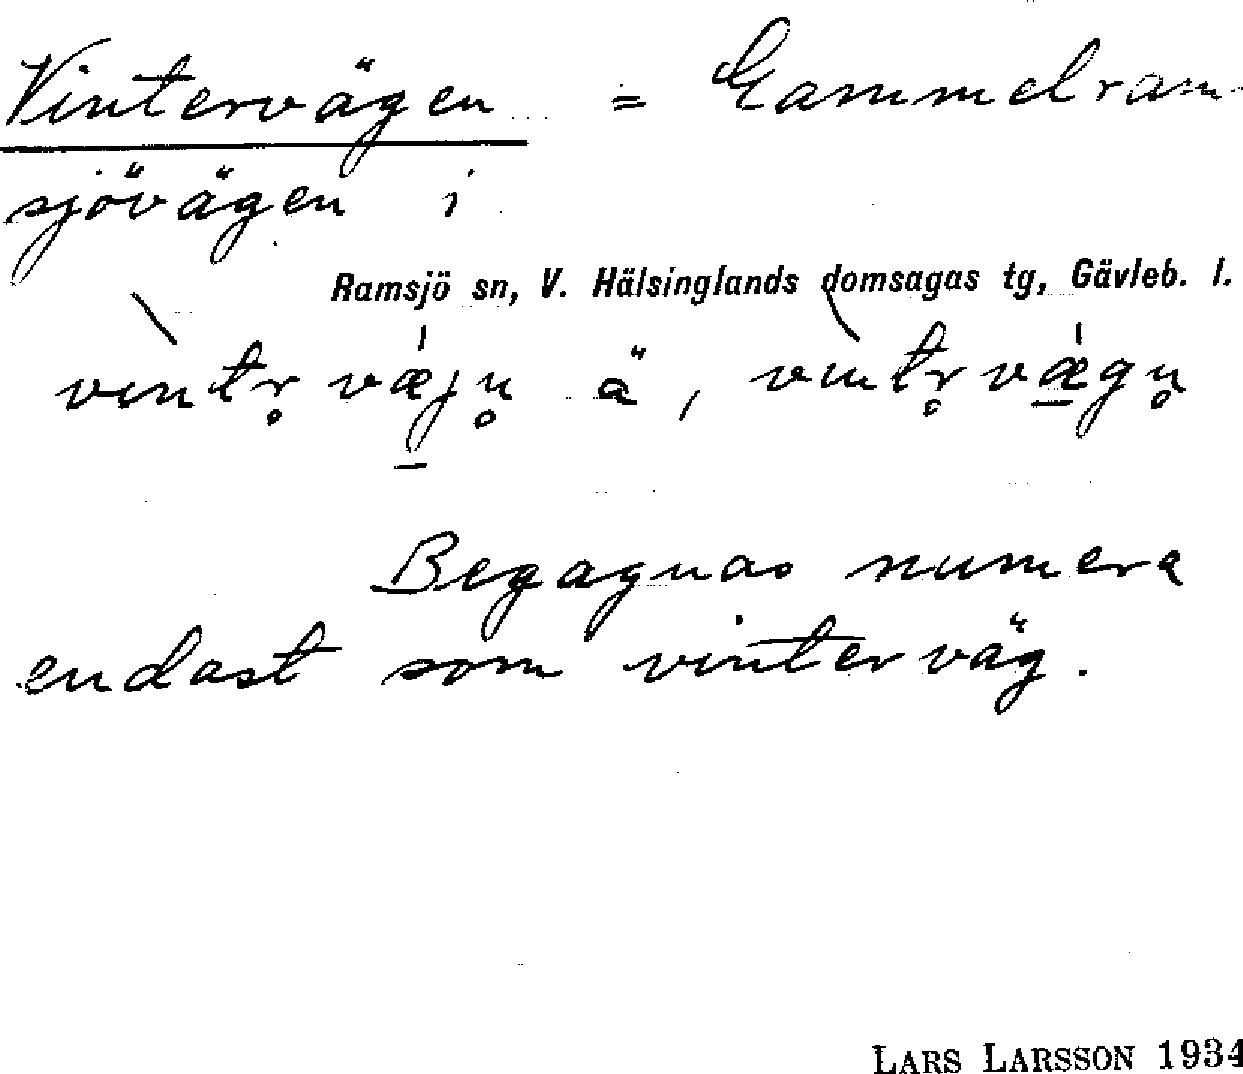 Vintervägen = Gammelram-
sjövägen i
Ramsjö sn, V. Hälsinglands domsagas tg, Gävleb. l.
vìntr̥ vǽjn̥ ä, vìntr̥ vǽgn̥
Begagnas numera
endast som vinterväg.
LARS LARSSON 1934